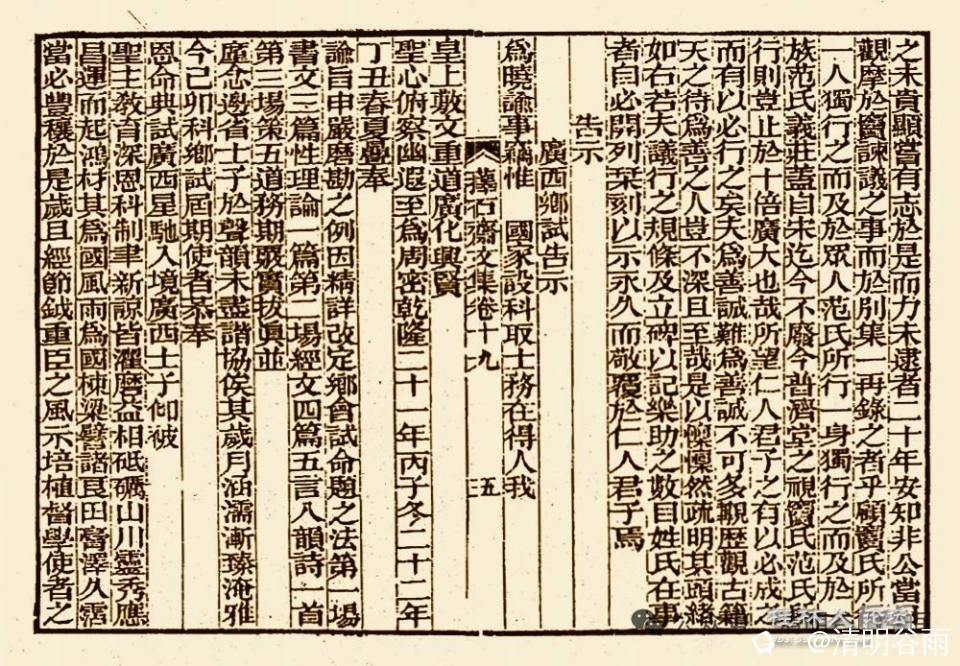 之未貴顯嘗有志於是而力未逮者二十年安知非公當日
觀摩於竇諫議之事而於別集一再錄之者乎顧竇氏所
一人獨行之而及於眾人范氏所行一身獨行之而及於
族范氏義莊蓋自宋迄今不廢今普濟堂之視竇氏范氏
行則豈止於十倍廣大也哉所望仁人君子之有以必成之
而有以必行之矣夫為善誠難為善誠不可多覯歷觀古籍
天之待為善之人豈不深且至哉是以懍懍然疏明其頭緒
如右若夫議行之規條及立碑以記樂助之數目姓氏在事
者自必開列栞刻以示永久而敬覆於仁人君子焉
告示
廣西鄉試告示
為曉諭事竊惟 國家設科取士務在得人我
蘀石齋文集卷十九 五
皇上敷文重道廣化興賢
聖心俯察幽遐至為周密乾隆二十一年丙子冬二十二年
丁丑春夏疊奉
諭旨申嚴磨勘之例因精詳改定鄉會試命題之法第一場
書文三篇性理論一篇第二場經文四篇五言八韻詩一首
第三場策五道務期覈實拔真並
廑念邊省士子於聲韻未盡諧協俟其歲月涵濡漸臻淹雅
今己卯科鄉試屆期使者恭奉
恩命典試廣西星馳入境廣西士子仰被
聖主教育深恩科制聿新諒皆濯磨益相砥礪山川靈秀應
昌運而起鴻材其為國風雨為國棟梁譬諸良田膏澤久霑
當必豐穰於是歲且經節鉞重臣之風示培植督學使者之
@清明谷雨